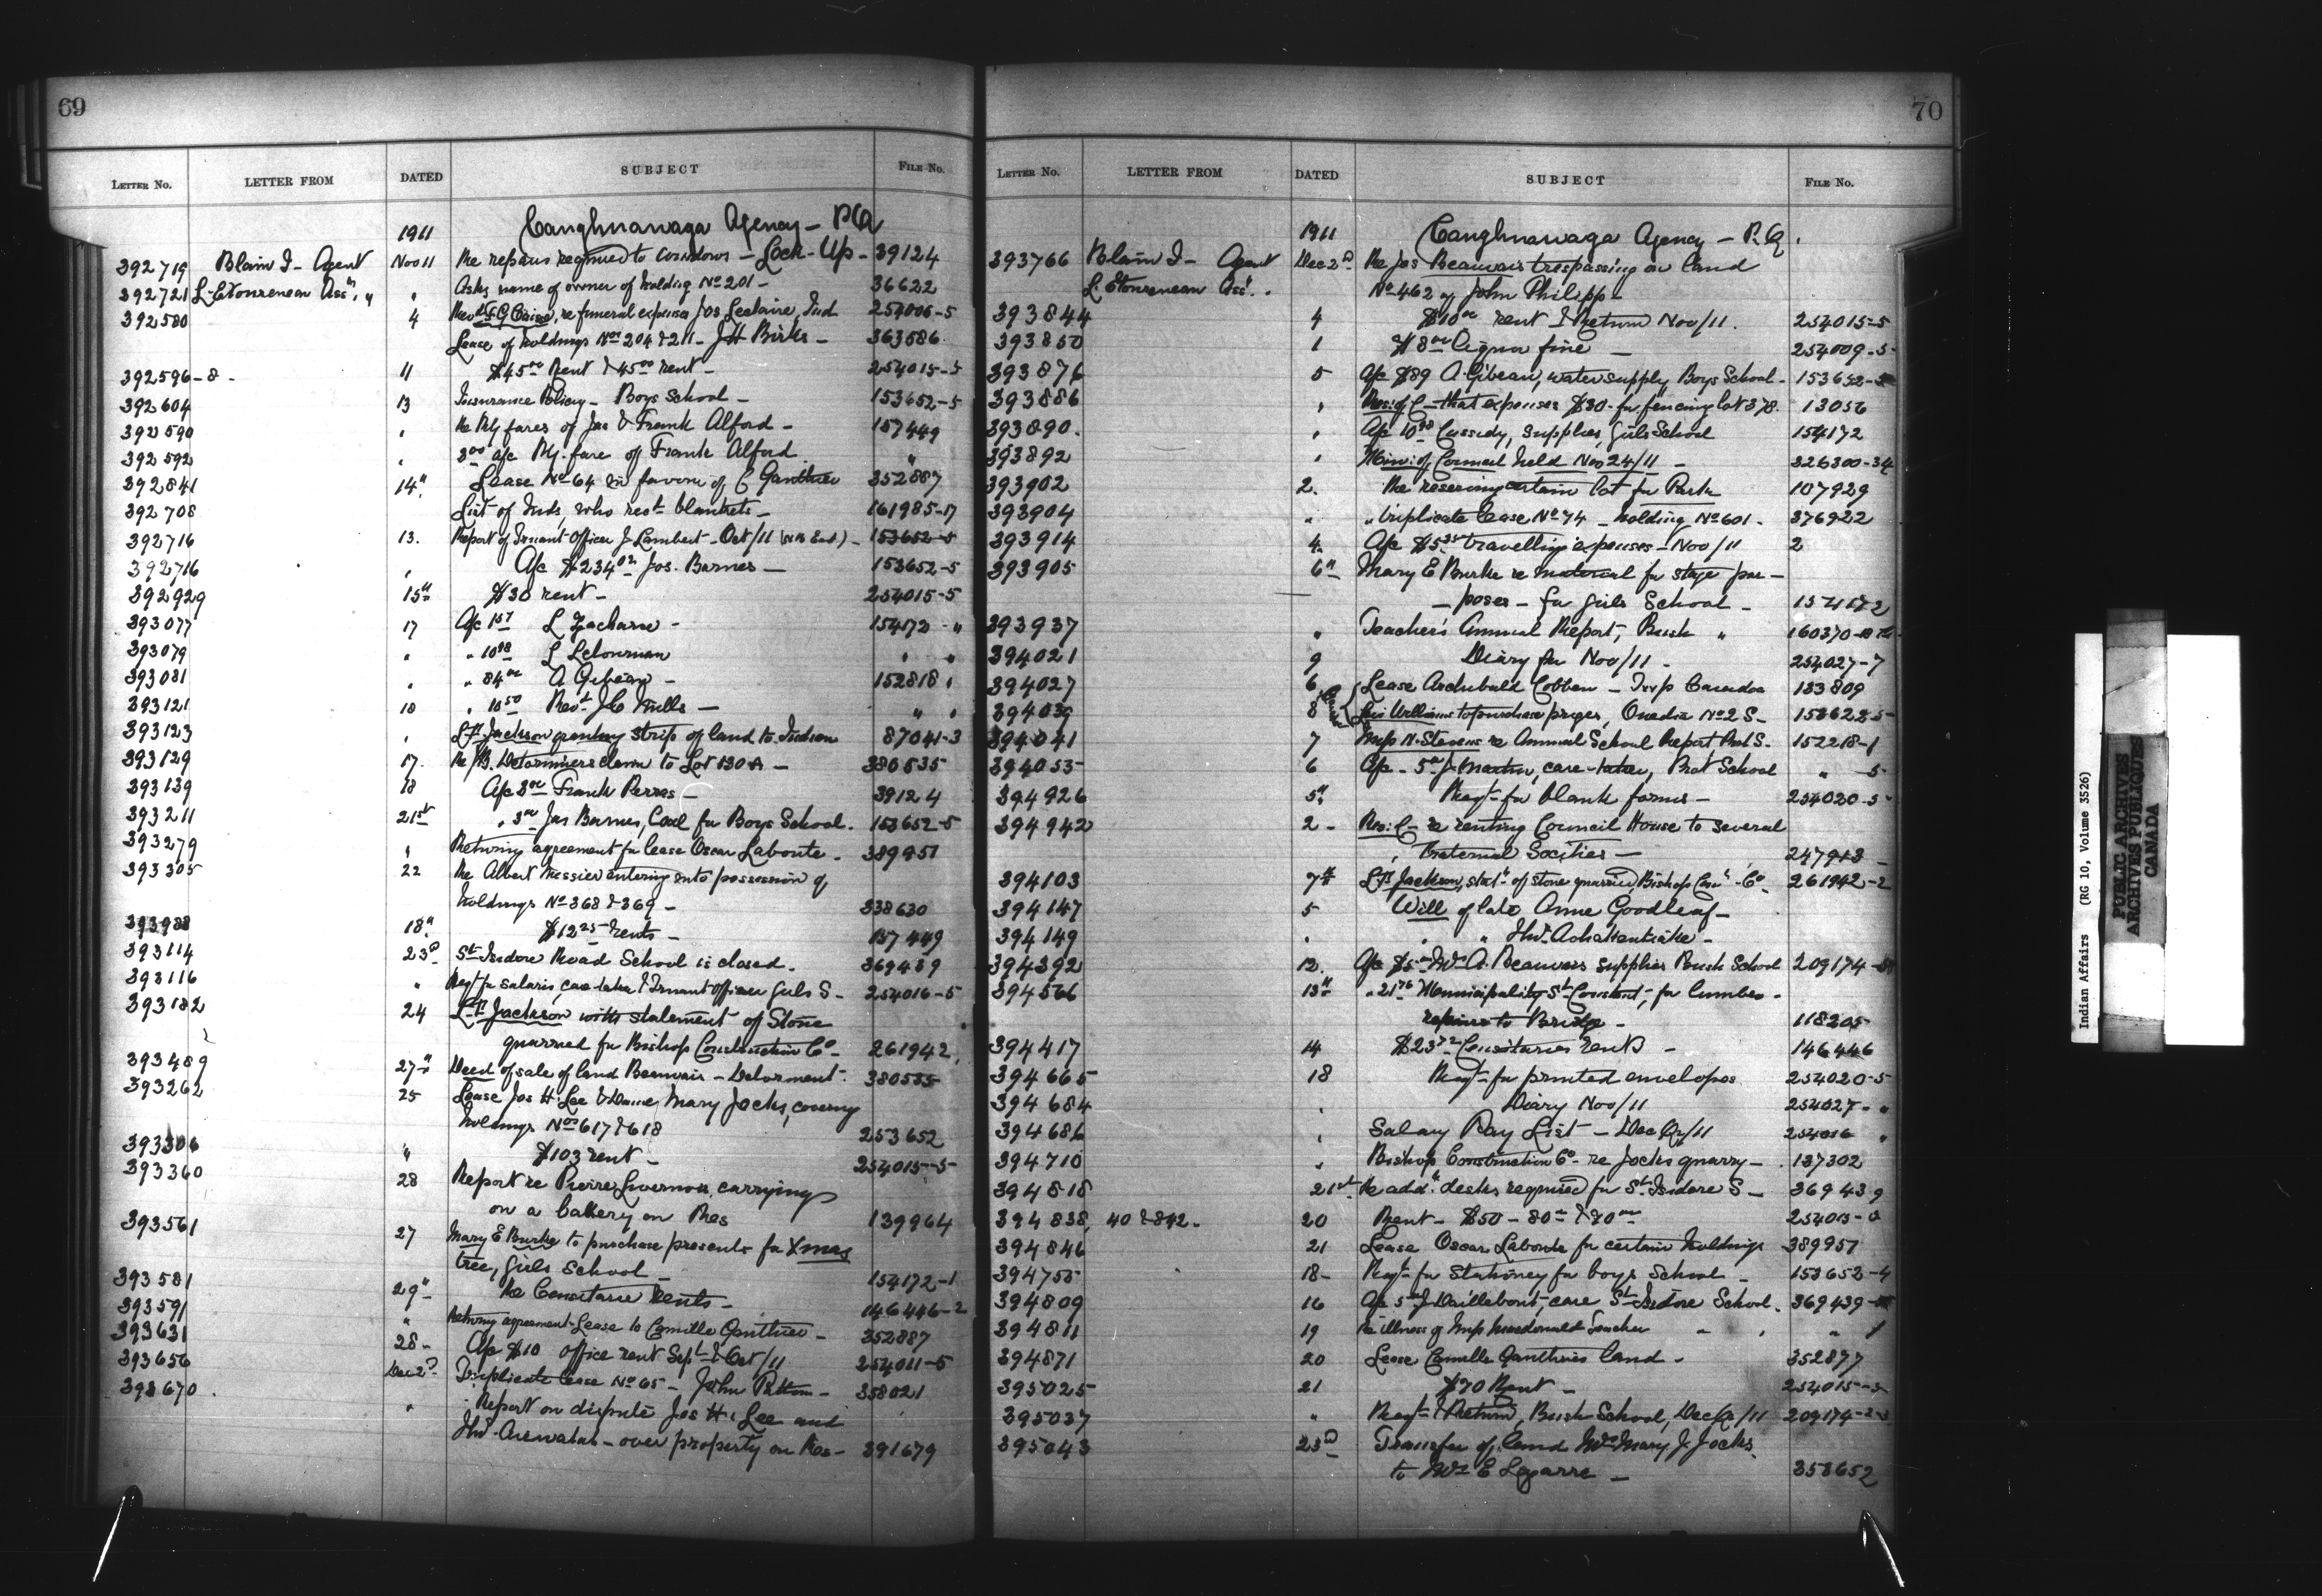 69
LETTER No. LETTER FROM DATED SUBJECT FILE No.
1911 Caughnawaga Agency - P.Q
392719 Blain J - Agent Nov 11 Re repairs required to windows - Lock-Up - 39124
392721 L. Letourneau Ass't " " Asks name of owner of holding No 201 - 36622
392580 4 Rev. re funeral expenses Jos Leclaire, Ind 254006-5
Lease of holdings Nos 204 & 211 - J H Birks - 363586
392596-8 - 11 $45.00 Rent & 45.00 rent - 254015-5
392604 13 Insurance Policy - Boys School - 153652-5
392590 " Re Rly fares of Jas & Frank Alford - 157449
392592 " 3.00 a/c Rly. fare of Frank Alford "
392841 14" Lease No 64 in favour of C Gauthier 352887
392708 List of Inds, who rec'd blankets - 161985-17
392716 13. Report of Truant Officer J Lambert - Oct/11 - 153652-5
392716 " A/c $234.02 Jos. Barnes - 153652-5
392929 15th $30 rent - 254015-5
393077 17 A/c L Zacharie - 154172 - "
393079 " " 10.98 L Letourneau " "
393081 " " 84.00 A Gibeau - 152818 "
393121 18 " 10.50 Rev'd J C Wills - " "
393123 " L. F. Jackson granting strip of land to Indian 87041-3
393129 17. Re claim to Lot 130 A - 380535
393139 18 A/c 3.00 Frank Perras - 39124
393211 21st " 3.00 Jas Barnes, Coal for Boys School. 153652-5
393279 " Returning agreement for lease Oscar Labonte - 389951
393305 22 Re Albert Messier entering into possession of
holdings No 368 & 369 - 338630
18" $12.25 rents - 157449
393114 23d St Isidore Road School is closed. 369439
393116 " Reqt for salaries, care-taker & Truant officer Girls S - 254016-5
393182 24 L. F. Jackson with statement of Stone
quarried for Bishop Construction Co - 261942
393489 27th Deed of sale of land Beauvais - Delorment - 380535
393262 25 Lease Jos H. Lee & Dame Mary Jocks, covering
holdings Nos 617 & 618 253652
393306 " $103 rent - 254015-5
393360 28 Report re Pierre Livernois carrying
on a bakery on Res 139964
393561 27 Mary E Burke to purchase presents for Xmas
tree, Girls School - 154172-1
393581 29" Re Censitaire Rents - 146446-2
393591 " Returning agreement-Lease to Camille Gauthier - 352887
393631 28 - A/c $10 office rent Sept & Oct/11 254011-5
393656 Dec 2d Triplicate lease No 65 - John Patton - 358021
393670 " Report on dispute Jos H. Lee and
- over property on Res - 391679
70
LETTER No. LETTER FROM DATED SUBJECT FILE No.
1911 Caughnawaga Agency - P.Q.
393766 Blain J - Agent Dec 2d Re Jos Beauvais trespassing on land
L. Letourneau Ass't. No 462 of John Philipp -
393844 4 $10.00 rent & Return Nov/11. 254015-5
393850 1 $8.00 liquor fine - 254009-5
393876 5 A/c $89 A. Gibeau, water supply Boys School - 153652-5
393886 " Res: of C - that expenses $30 - for fencing lot 378. 13056
393890. " A/c 10.98 Cassidy, supplies, Girls School 154172
393892 " Min: of Council held Nov 24/11 - 326300-34
393902 2. Re reserving certain lot for Park 107929
393904 " " triplicate lease No 74 - holding No 601 - 376922
393914 4. A/c travelling expenses - Nov/11 2
393905 6th Mary E Burke re material for stage pur-
- poses - for Girls School - 154172
393937 " Teacher's Annual Report, Bush " 160370
394021 9 Diary for Nov/11 - 254027-7
394027 6 Lease Archibald Cobban - Twp Caradoc 133809
394039 8 Williams to purchase prizes, Oneida No 2 S - 153622-5
394041 7 Miss N. Stevens re Annual School Report Prot S. 152218-1
394055 6 A/c - J. Martin, care-taker, Prot School " 5
394926 5th Reqt for blank forms - 254020-5
394942 2 - Res: C - re renting Council House to several
Fraternal Socities - 247913 -
394103 7th L. F. Jackson, stat't of stone quarried, Bishop Con'n Co 261942-2
394147 5 Will of late Anne Goodleaf -
394149 " " "
394392 12 A/c Mrs A. Beauvais supplies Bush School 209174-5
394566 13th " Municipality St Constant, for lumber -
repairs to Bridge - 118205
394417 14 Censitaires rents - 146446
394665 18 Reqt for printed envelopes 254020-5
394684 " Diary Nov/11 254027 - "
394686 " Salary Pay List - Dec Qr/11 254016 "
394710 " Bishop Construction Co - re Jocks quarry - 137302
394818 21st Re add'l desks required for St Isidore S - 369439
394838, 40 & 842. 20 Rent - $50 - 80 - & 20 254015-5
394846 21 Lease Oscar Labonte for certain holdings 389951
394755 18 - Reqt for stationery for boys School - 153652-4
394809 16 A/c J Daillebout, care St Isidore School. 369439
394811 19 Re illness of Miss Macdonald Teacher " " " 1
394871 20 Lease Camille Gauthier's land - 352877
395025 21 $70 Rent - 254015-5
395037 " Reqt & Return, Bush School, Dec Qr/11 209174
395043 23d Transfer of land Mrs Mary J Jocks
to Mrs E Legarre - 353652
Indian Affairs (RG 10, Volume 3526)
PUBLIC ARCHIVES
ARCHIVES PUBLIQUES
CANADA